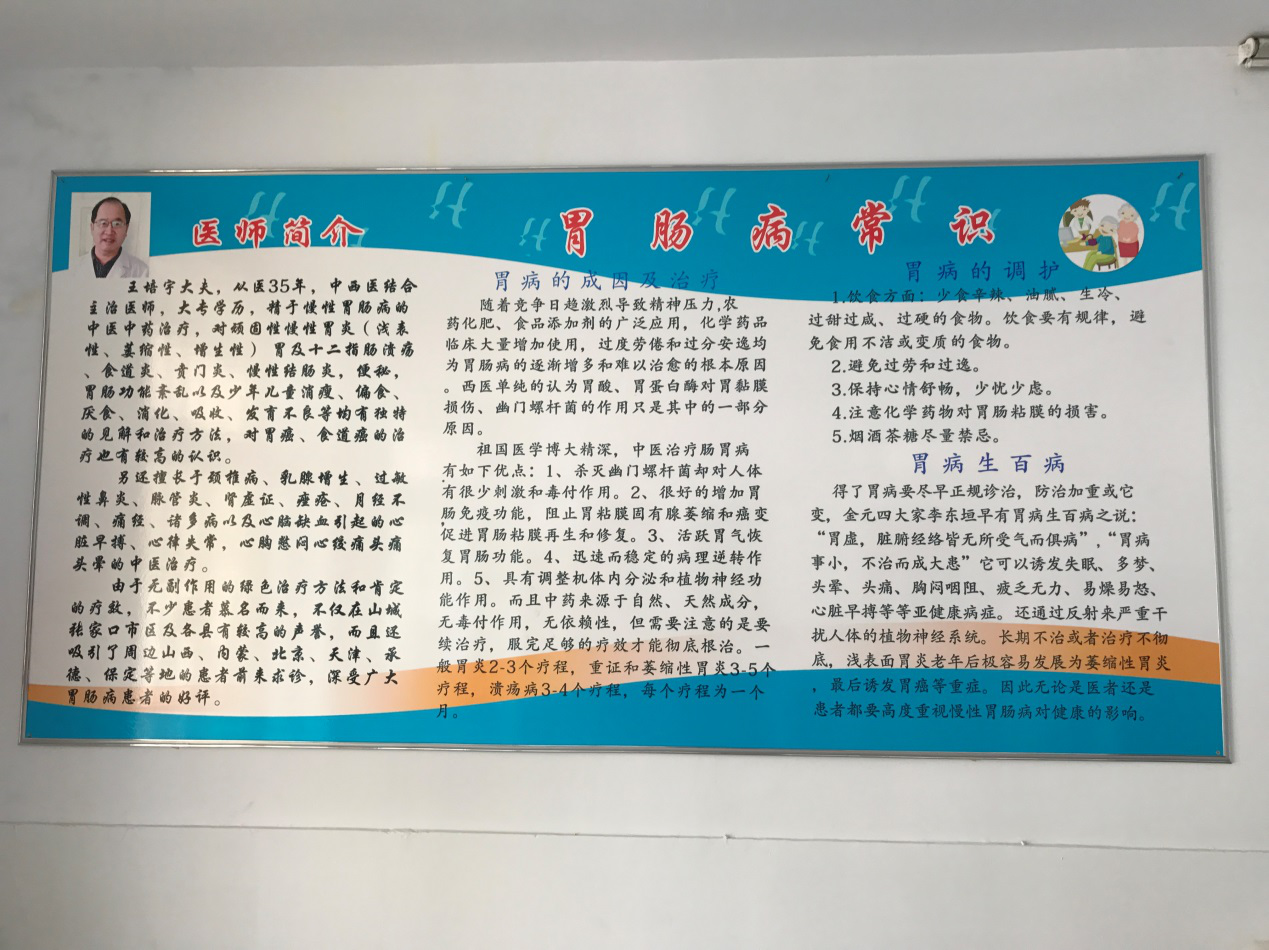 医师简介
王培宇大夫，从医35年，中西医结合
主治医师，大专学历，精于慢性胃肠病的
中医中药治疗，对顽固性慢性胃炎（浅表
性、萎缩性、增生性）胃及十二指肠溃疡
、食道炎、贲门炎、慢性结肠炎，便秘，
胃肠功能紊乱以及少年儿童消瘦、偏食、
厌食、消化、吸收、发育不良等均有独特
的见解和治疗方法，对胃癌、食道癌的治
疗也有较高的认识。
另还擅长于颈椎病、乳腺增生、过敏
性鼻炎、脉管炎、肾虚证、痤疮、月经不
调、痛经、诸多病以及心脑缺血引起的心
脏早搏、心律失常，心胸憋闷心绞痛头痛
头晕的中医治疗。
由于无副作用的绿色治疗方法和肯定
的疗效，不少患者慕名而来，不仅在山城
张家口市区及各县有较高的声誉，而且还
吸引了周边山西、内蒙、北京、天津、承
德、保定等地的患者前来求诊，深受广大
胃肠病患者的好评。
胃肠病常识
胃病的成因及治疗
随着竞争日趋激烈导致精神压力,农
药化肥、食品添加剂的广泛应用，化学药品
临床大量增加使用，过度劳倦和过分安逸均
为胃肠病的逐渐增多和难以治愈的根本原因
。西医单纯的认为胃酸、胃蛋白酶对胃黏膜
损伤、幽门螺杆菌的作用只是其中的一部分
原因。
祖国医学博大精深，中医治疗肠胃病
有如下优点：1、杀灭幽门螺杆菌却对人体
有很少刺激和毒付作用。2、很好的增加胃
肠免疫功能，阻止胃粘膜固有腺萎缩和癌变
，促进胃肠粘膜再生和修复。3、活跃胃气恢
复胃肠功能。4、迅速而稳定的病理逆转作
用。5、具有调整机体内分泌和植物神经功
能作用。而且中药来源于自然、天然成分，
无毒付作用，无依赖性，但需要注意的是要
续治疗，服完足够的疗效才能彻底根治。一
般胃炎2-3个疗程，重证和萎缩性胃炎3-5个
疗程，溃疡病3-4个疗程，每个疗程为一个
月。
胃病的调护
1.饮食方面：少食辛辣、油腻、生冷、
过甜过咸、过硬的食物。饮食要有规律，避
免食用不洁或变质的食物。
2.避免过劳和过逸。
3.保持心情舒畅，少忧少虑。
4.注意化学药物对胃肠粘膜的损害。
5.烟酒茶糖尽量禁忌。
胃病生百病
得了胃病要尽早正规诊治，防治加重或它
变，金元四大家李东垣早有胃病生百病之说：
“胃虚，脏腑经络皆无所受气而俱病”,“胃病
事小，不治而成大患”它可以诱发失眠、多梦、
头晕、头痛、胸闷咽阻、疲乏无力、易燥易怒、
心脏早搏等等亚健康病症。还通过反射来严重干
扰人体的植物神经系统。长期不治或者治疗不彻
底，浅表面胃炎老年后极容易发展为萎缩性胃炎
，最后诱发胃癌等重症。因此无论是医者还是
患者都要高度重视慢性胃肠病对健康的影响。